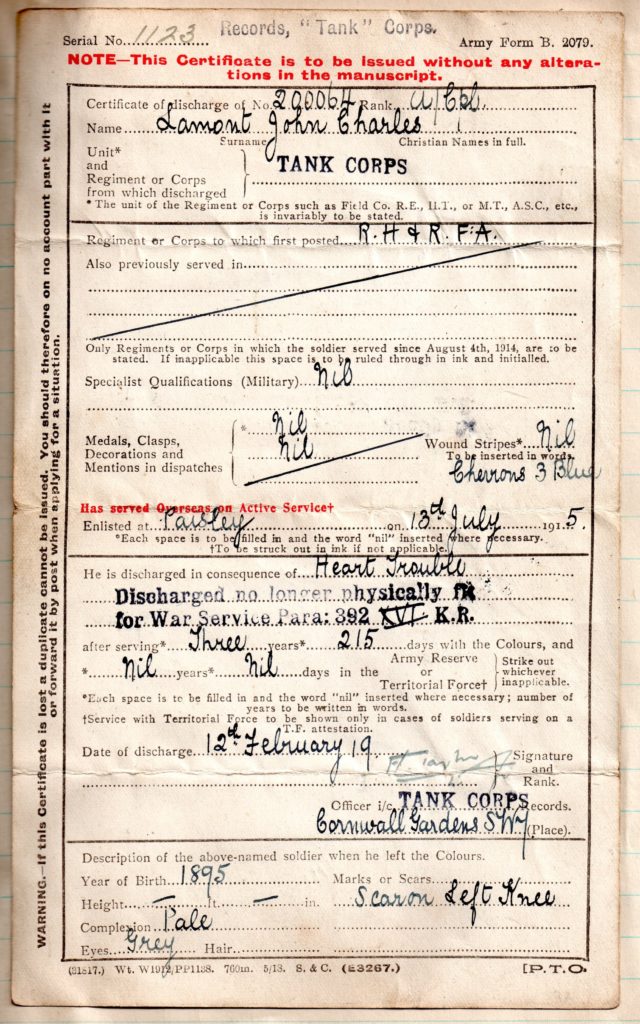 Records, "Tank" Corps.
Serial No. 1123
Army Form B. 2079.
NOTE—This Certificate is to be issued without any altera-
tions in the manuscript.
Certificate of discharge of No. 200064 Rank A/Cpl.
Name Lamont John Charles
Surname Christian Names in full.
Unit*
and
Regiment or Corps
from which discharged
TANK CORPS
* The unit of the Regiment or Corps such as Field Co. R.E., H.T., or M.T., A.S.C., etc.,
is invariably to be stated.
Regiment or Corps to which first posted R.H & R.F.A.
Also previously served in
Only Regiments or Corps in which the soldier served since August 4th, 1914, are to be
stated. If inapplicable this space is to be ruled through in ink and initialled.
Specialist Qualifications (Military) Nil
Medals, Clasps,
Decorations and
Mentions in dispatches
* Nil
Nil
Wound Stripes* Nil
To be inserted in words.
Chevrons 3 Blue
Has served Overseas on Active Service†
Enlisted at Paisley on 13th July 1915.
*Each space is to be filled in and the word "nil" inserted where necessary.
†To be struck out in ink if not applicable.
He is discharged in consequence of Heart Trouble
Discharged no longer physically fit
for War Service Para: 392 XVI K.R.
after serving* Three years* 215 days with the Colours, and
* Nil years* Nil days in the
Army Reserve
or
Territorial Force†
Strike out
whichever
inapplicable.
*Each space is to be filled in and the word "nil" inserted where necessary; number of
years to be written in words.
†Service with Territorial Force to be shown only in cases of soldiers serving on a
T.F. attestation.
Date of discharge 12th February 19
Signature
and
Rank.
Officer i/c TANK CORPS Records.
Cornwall Gardens SW7 (Place).
Description of the above-named soldier when he left the Colours.
Year of Birth 1895 Marks or Scars
Height — ft. — in. Scar on Left Knee
Complexion Pale
Eyes Grey Hair
(21817.) Wt. W1912/PP1138. 760m. 5/18. S. & C. (E3267.) [P.T.O.
WARNING.—If this Certificate is lost a duplicate cannot be issued. You should therefore on no account part with it
or forward it by post when applying for a situation.